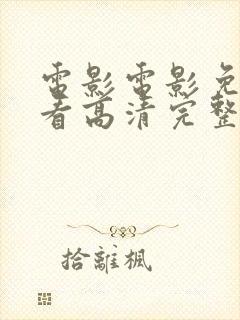 電影電影免
看高清完整
拾離楓